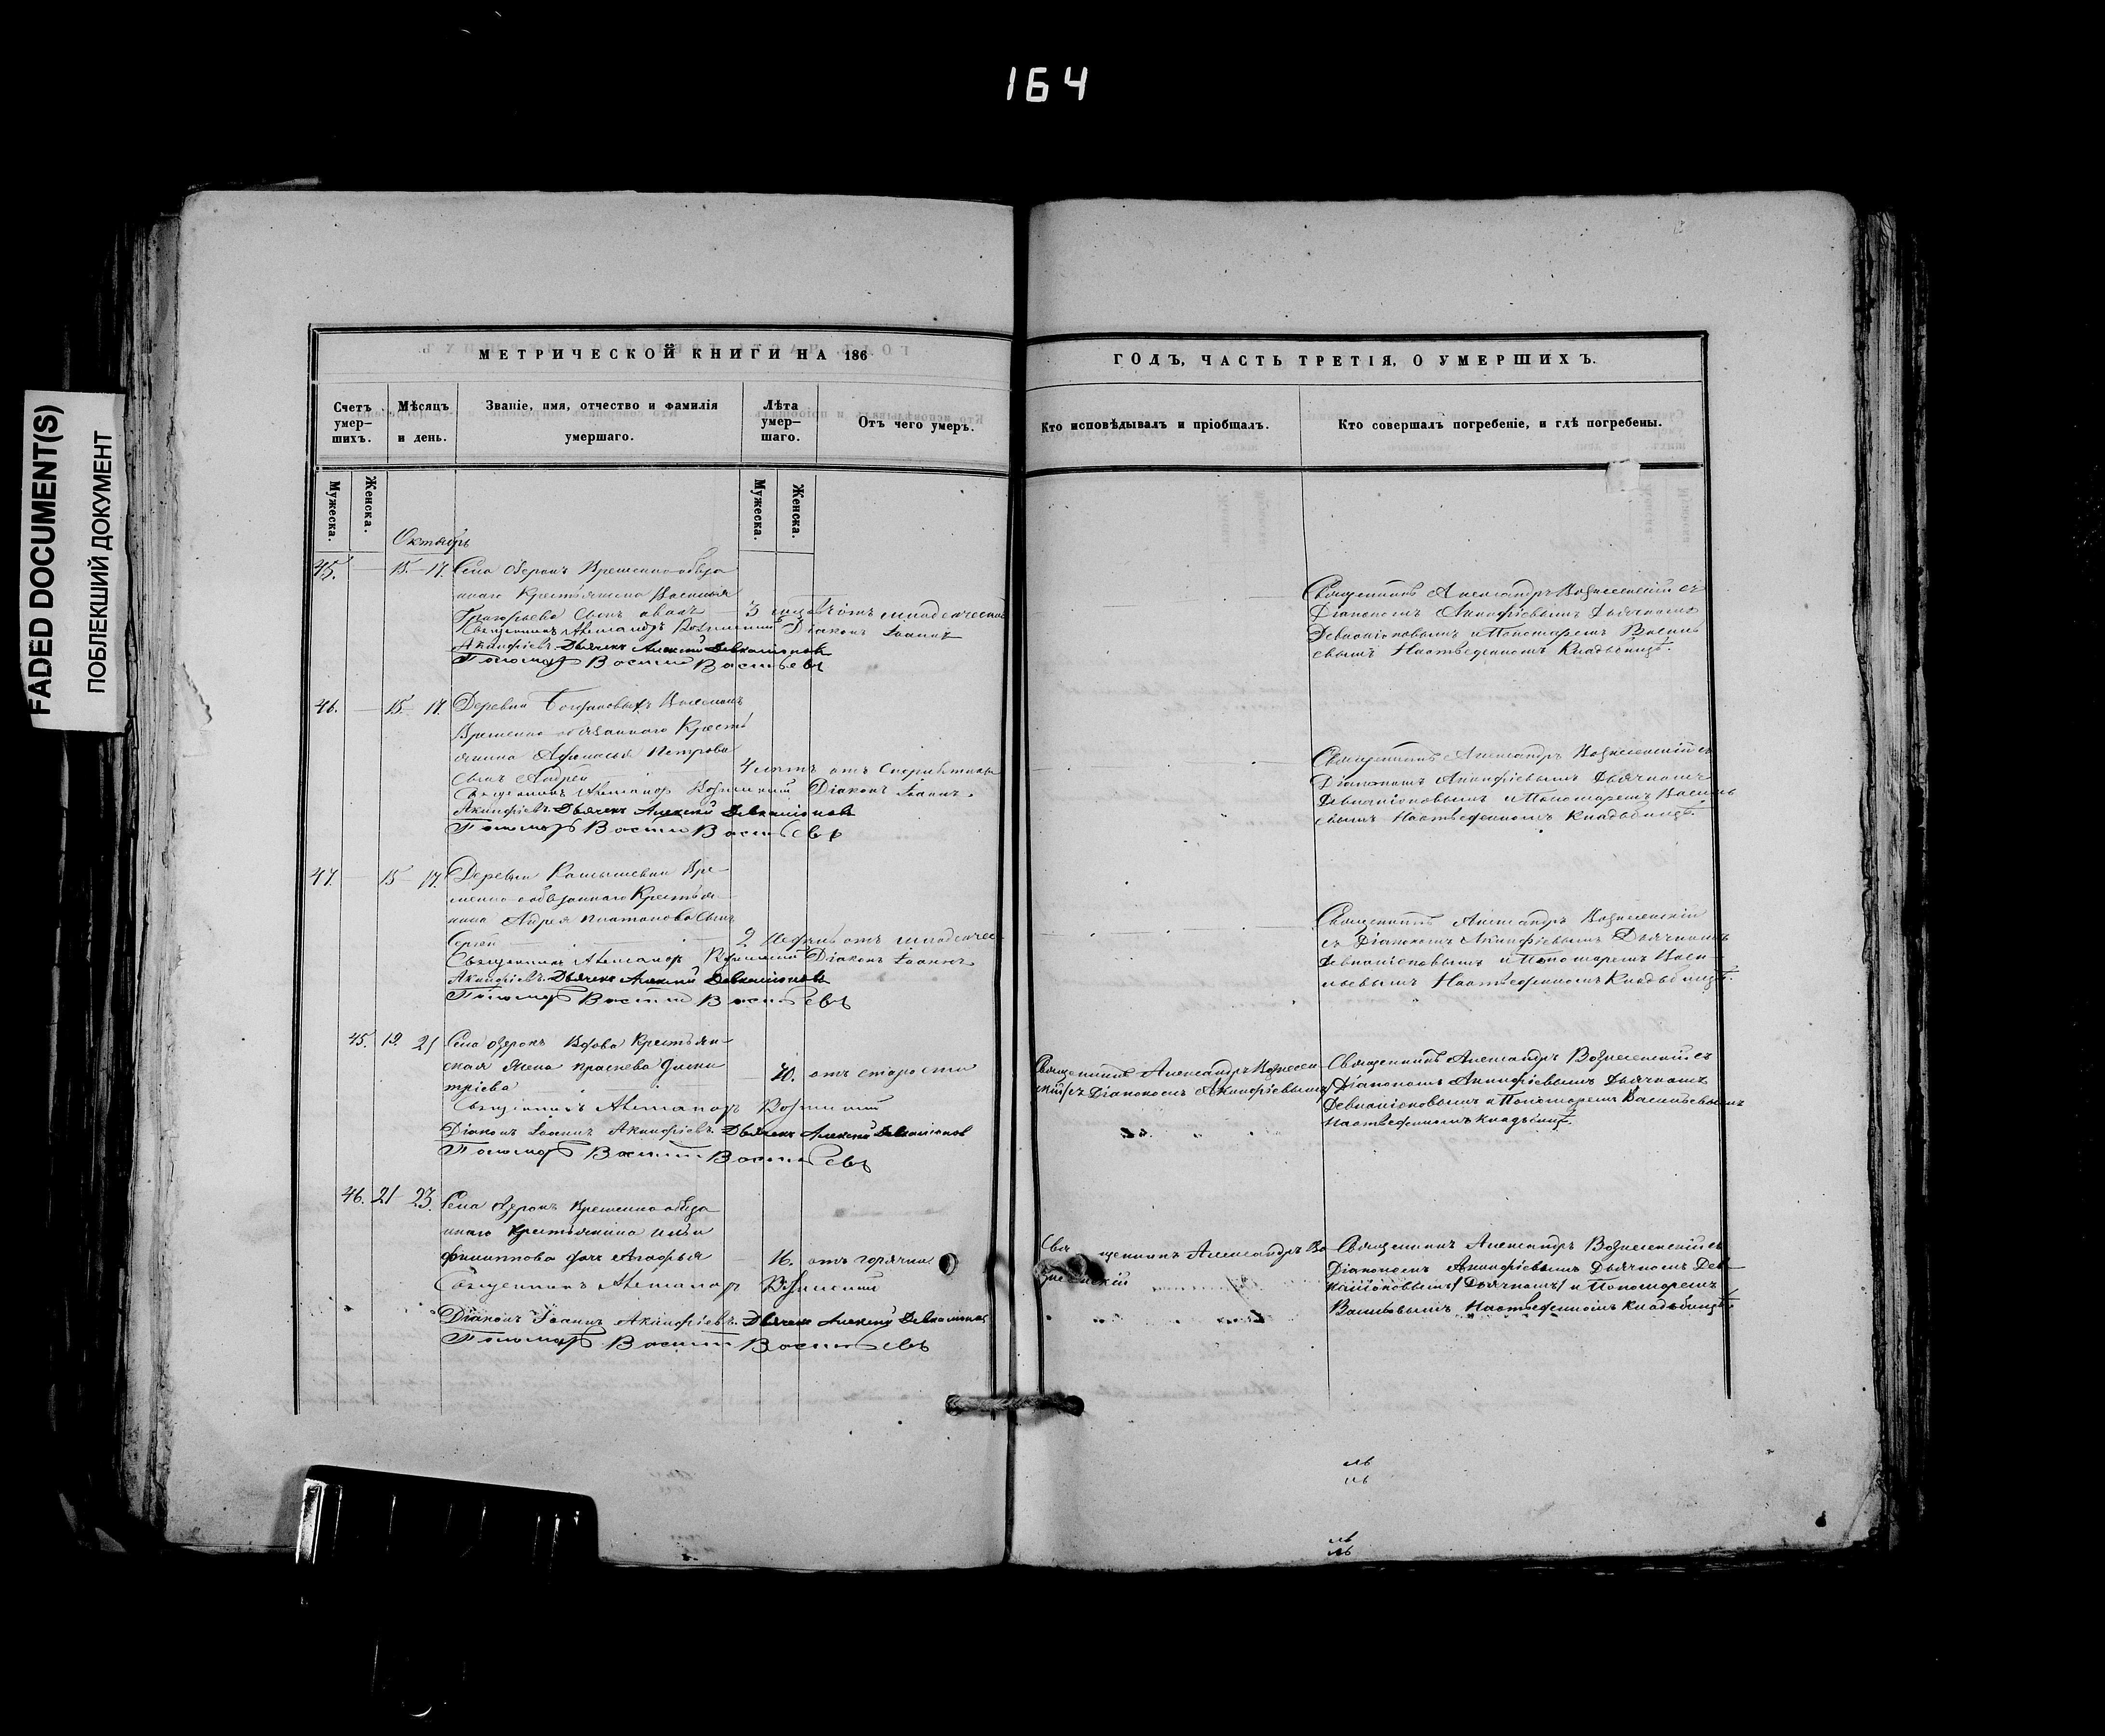 164
FADED DOCUMENT(S)
ПОБЛЕКШИЙ ДОКУМЕНТ
МЕТРИЧЕСКОЙ КНИГИ НА 186
ГОДЪ, ЧАСТЬ ТРЕТІЯ, О УМЕРШИХЪ.
Счетъ умер–шихъ.
Мѣсяцъ и день.
Званіе, имя, отчество и фамилія умершаго.
Лѣта умер–шаго.
Отъ чего умеръ.
Кто исповѣдывалъ и пріобщалъ.
Кто совершалъ погребеніе, и гдѣ погребены.
Мужеска.
Женска.
Мужеска.
Женска.
Октябрь
45. 15 17. Села Озерокъ Временно-обяза
ннаго Крестьянина Василья
Григорьева Сынъ
3 отъ младенческой
Священникъ Александръ Вознесенскій Діаконъ Іоаннъ
Акинфіевъ Дьячекъ Алексій Девкаліоновъ
Пономарь Василій Васильевъ
Священникъ Александръ Вознесенскій съ
Діакономъ Акинфіевымъ Дьячкомъ
Девкаліоновымъ и Пономаремъ Василь
евымъ На отведенномъ Кладбищѣ.
46. 15 17. Деревни
Временно-обязаннаго Кресть
янина Афанасья Петрова
Сынъ Андрей
4 лѣтъ отъ
Священникъ Александръ Вознесенскій Діаконъ Іоаннъ
Акинфіевъ Дьячекъ Алексій Девкаліоновъ
Пономарь Василій Васильевъ
Священникъ Александръ Вознесенскій съ
Діакономъ Акинфіевымъ Дьячкомъ
Девкаліоновымъ и Пономаремъ Василь
евымъ На отведенномъ Кладбищѣ.
47. 15 17. Деревни Камышевки Вре
менно-обязаннаго Крестья
нина Андрея Платонова Сынъ
Сергей
2 недѣль отъ младенчес
Священникъ Александръ Вознесенскій Діаконъ Іоаннъ
Акинфіевъ Дьячекъ Алексій Девкаліоновъ
Пономарь Василій Васильевъ
Священникъ Александръ Вознесенскій
съ Діакономъ Акинфіевымъ Дьячкомъ
Девкаліоновымъ и Пономаремъ Васи
льевымъ На отведенномъ Кладбищѣ.
45. 19. 21 Села Озерокъ Вдова Крестьян
ская Жена
тріева
70. отъ старости
Священникъ Александръ Вознесенскій
Діаконъ Іоаннъ Акинфіевъ Дьячекъ Алексій Девкаліоновъ
Пономарь Василій Васильевъ
Священникъ Александръ Вознесен
скій съ Діакономъ Акинфіевымъ
Священникъ Александръ Вознесенскій съ
Діакономъ Акинфіевымъ Дьячкомъ
Девкаліоновымъ и Пономаремъ Васильевымъ
На отведенномъ кладбищѣ.
46. 21 23. Села Озерокъ Временно-обяза
ннаго Крестьянина Ильи
Филиппова дочь Агафья
16. отъ горячки
Священникъ Александръ Вознесенскій
Діаконъ Іоаннъ Акинфіевъ Дьячекъ Алексій Девкаліоновъ
Пономарь Василій Васильевъ
Священникъ Александръ Во
знесенскій
Священникъ Александръ Вознесенскій съ
Діакономъ Акинфіевымъ Дьячкомъ Дев
каліоновымъ /Дьячкомъ/ и Пономаремъ
Васильевымъ На отведенномъ кладбищѣ.